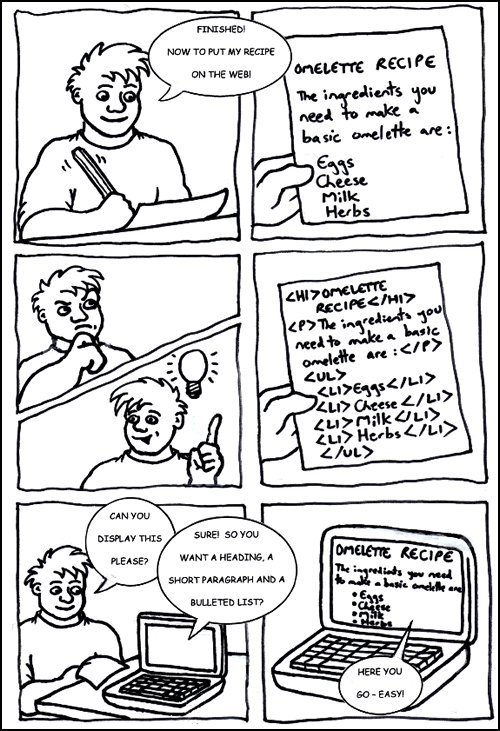 FINISHED!
NOW TO PUT MY RECIPE
ON THE WEB!
OMELETTE RECIPE
The ingredients you
need to make a
basic omelette are:
Eggs
Cheese
Milk
Herbs
<H1>OMELETTE
RECIPE</H1>
<P>The ingredients you
need to make a basic
omelette are:</P>
<UL>
<LI>Eggs</LI>
<LI>Cheese</LI>
<LI>Milk</LI>
<LI>Herbs</LI>
</UL>
CAN YOU
DISPLAY THIS
PLEASE?
SURE! SO YOU
WANT A HEADING, A
SHORT PARAGRAPH AND A
BULLETED LIST?
OMELETTE RECIPE
The ingredients you need
to make a basic omelette are
• Eggs
• Cheese
• Milk
• Herbs
HERE YOU
GO – EASY!